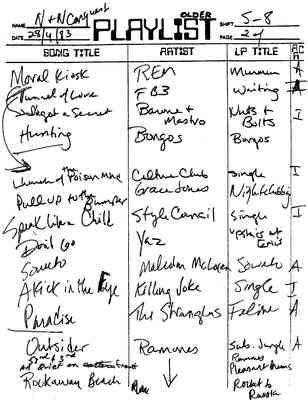 NAME N + N Conquest OLDER SHIFT 5-8
DATE 28/4/83 PLAYLIST PAGE 2 of
SONG TITLE ARTIST LP TITLE
Moral Kiosk REM Murmur A
Tunnel of Love FB3 Waiting A
I've got a Secret Barone + Mastro Nuts + Bolts I
Hunting Bongos Bongos
Church of the Poison Mind Culture Club Single I
Pull up to the Bumper Grace Jones Nightclubbing
Speak Like a Child Style Council Single I
Don't Go Yaz Upstairs at Eric's
Soweto Malcolm McLaren Soweto A
A Kick in the Eye Killing Joke Single I
Paradise The Stranglers Feline A
Outsider Ramones Sub. Jungle A
52nd & 3rd Ramones
All Quiet on Eastern Front Pleasant Dreams
Rockaway Beach Rocket to Russia